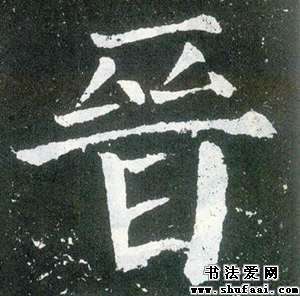 晉
书法爱网
www.shufaai.com